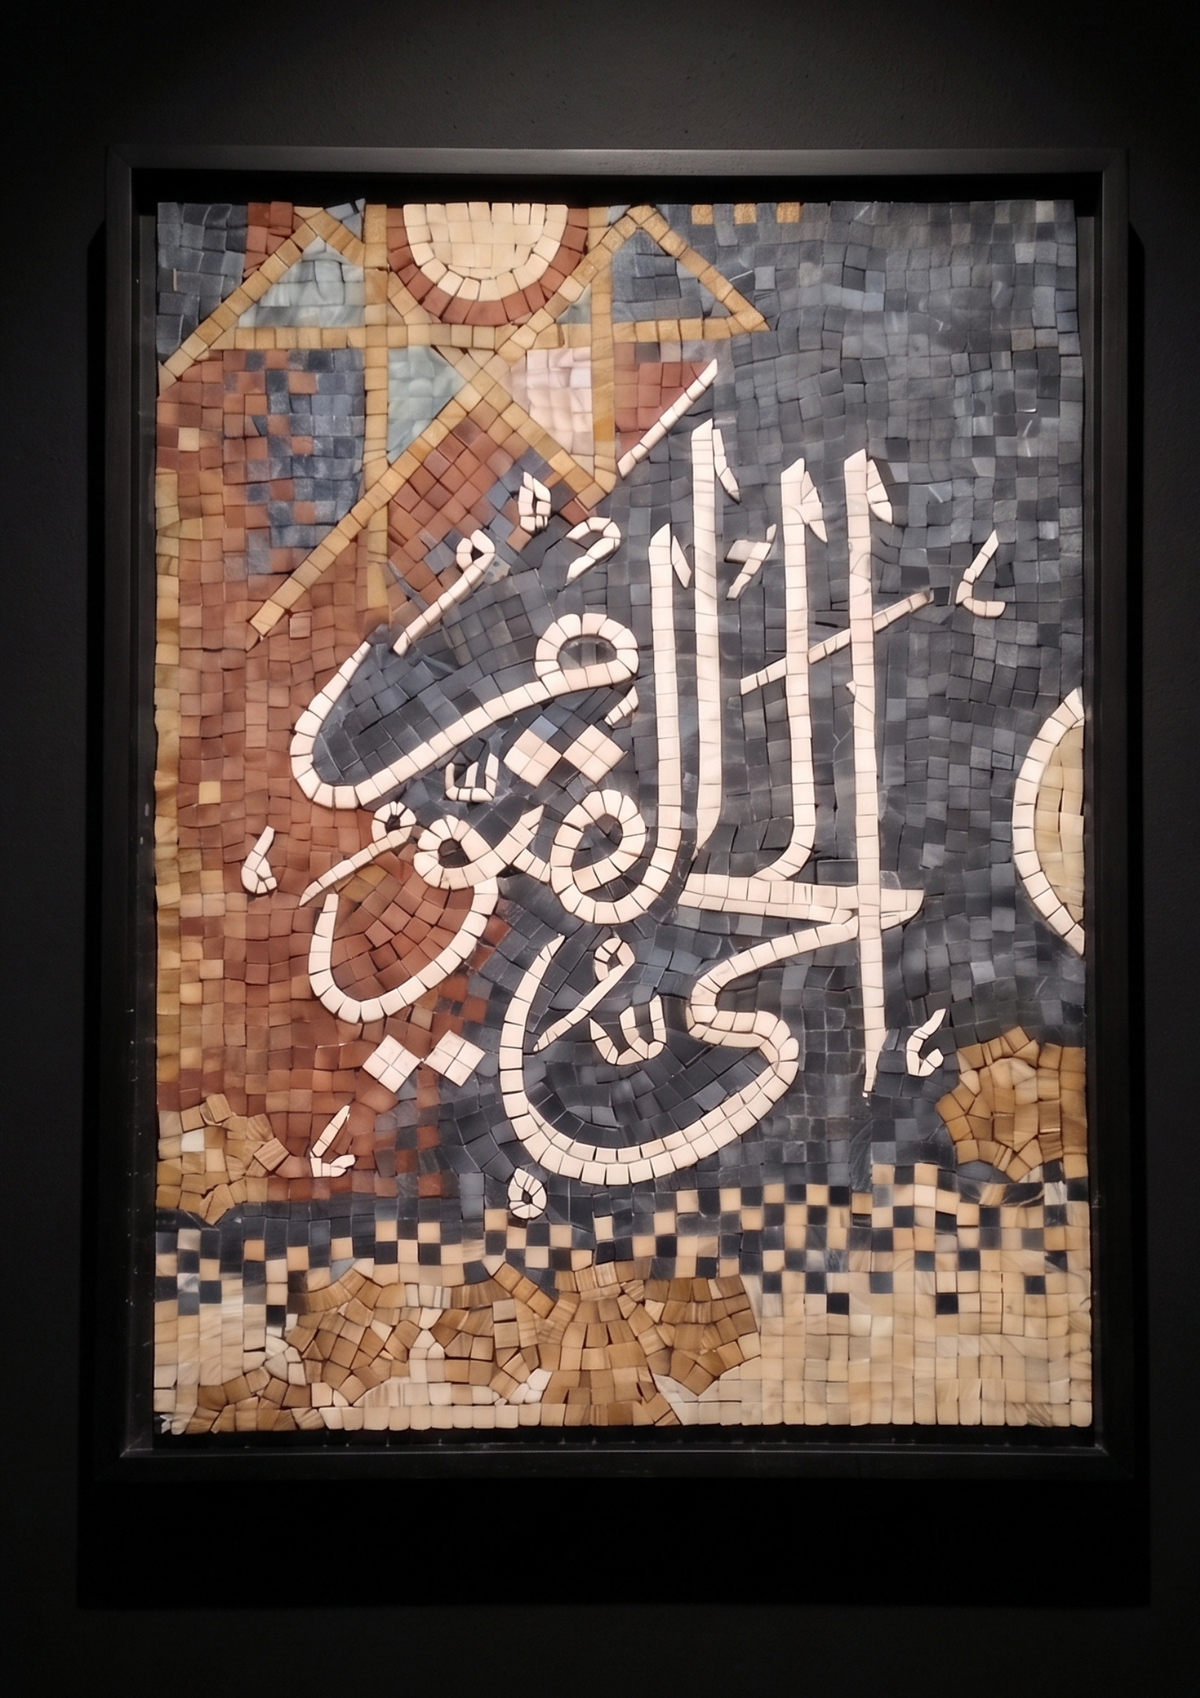 الحي القيوم